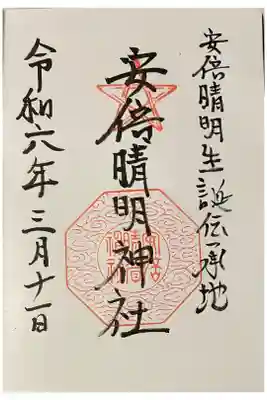 安倍晴明生誕伝承地
安倍晴明神社
令和六年三月十一日